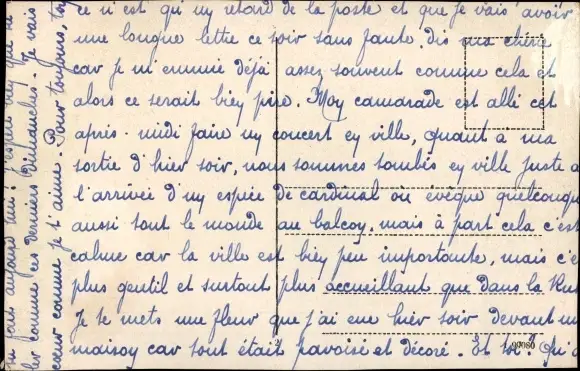 ce n'est qu'uy retard de la poste et que je vais avoir
une longue lettre ce soir sans faute, dis ma chérie
car je m'ennuie déjà assez souvent comme cela et
alors ce serait biey pire. Moy camarade est allé cet
après-midi faire uy concert ey ville, quant a ma
sortie d'hier soir, nous sommes tombés ey ville juste a
l'arrivée d'uy espèce de cardinal ou évêque quelconque
aussi tout le monde au balcoy, mais à part cela c'est
calme car la ville est biey peu importante, mais c'e
plus gentil et surtout plus accueillant que dans la Ruh
Je te mets une fleur que j'ai eue hier soir devant un
maisoy car tout était pavoisé et décoré. Et toi? Qui
00980
comme ces derniers Dimanches. Je vais
cœur comme je t'aime. Pour toujours, toy